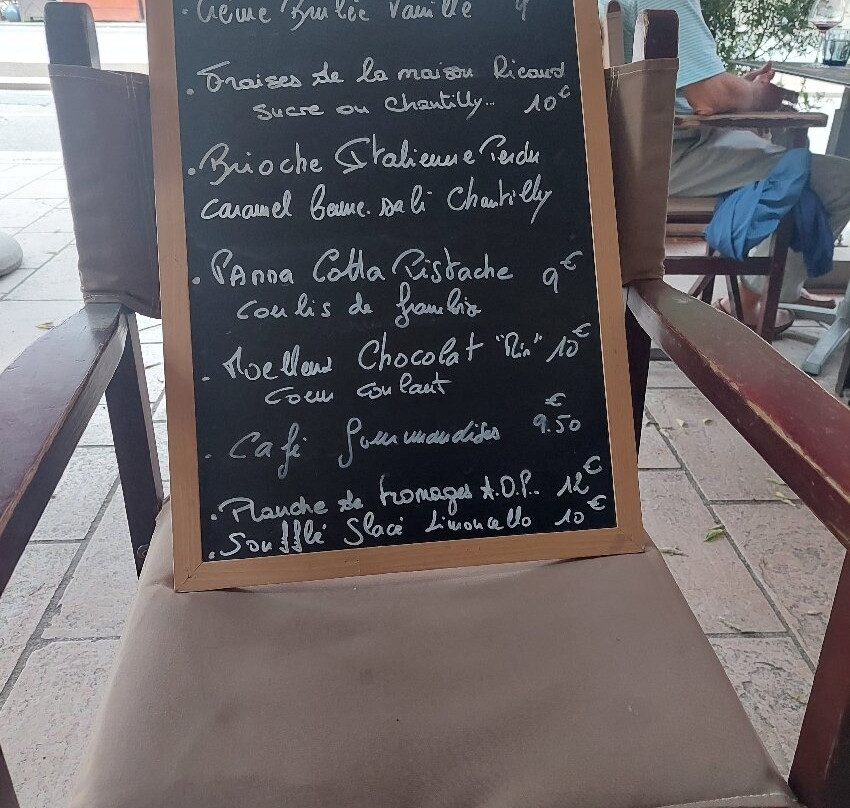 . Crème Brulée Vanille 9
. Fraises de la maison Ricaud
sucre ou Chantilly... 10€
. Brioche Italienne Perdu
caramel beurre salé Chantilly
. Panna Cotta Pistache 9€
Coulis de
. Moelleux Chocolat 10€
coeur coulant
. Café Gourmandises 9.50€
. Planche de fromages A.O.P.. 12€
. Soufflé Glacé Limoncello 10€